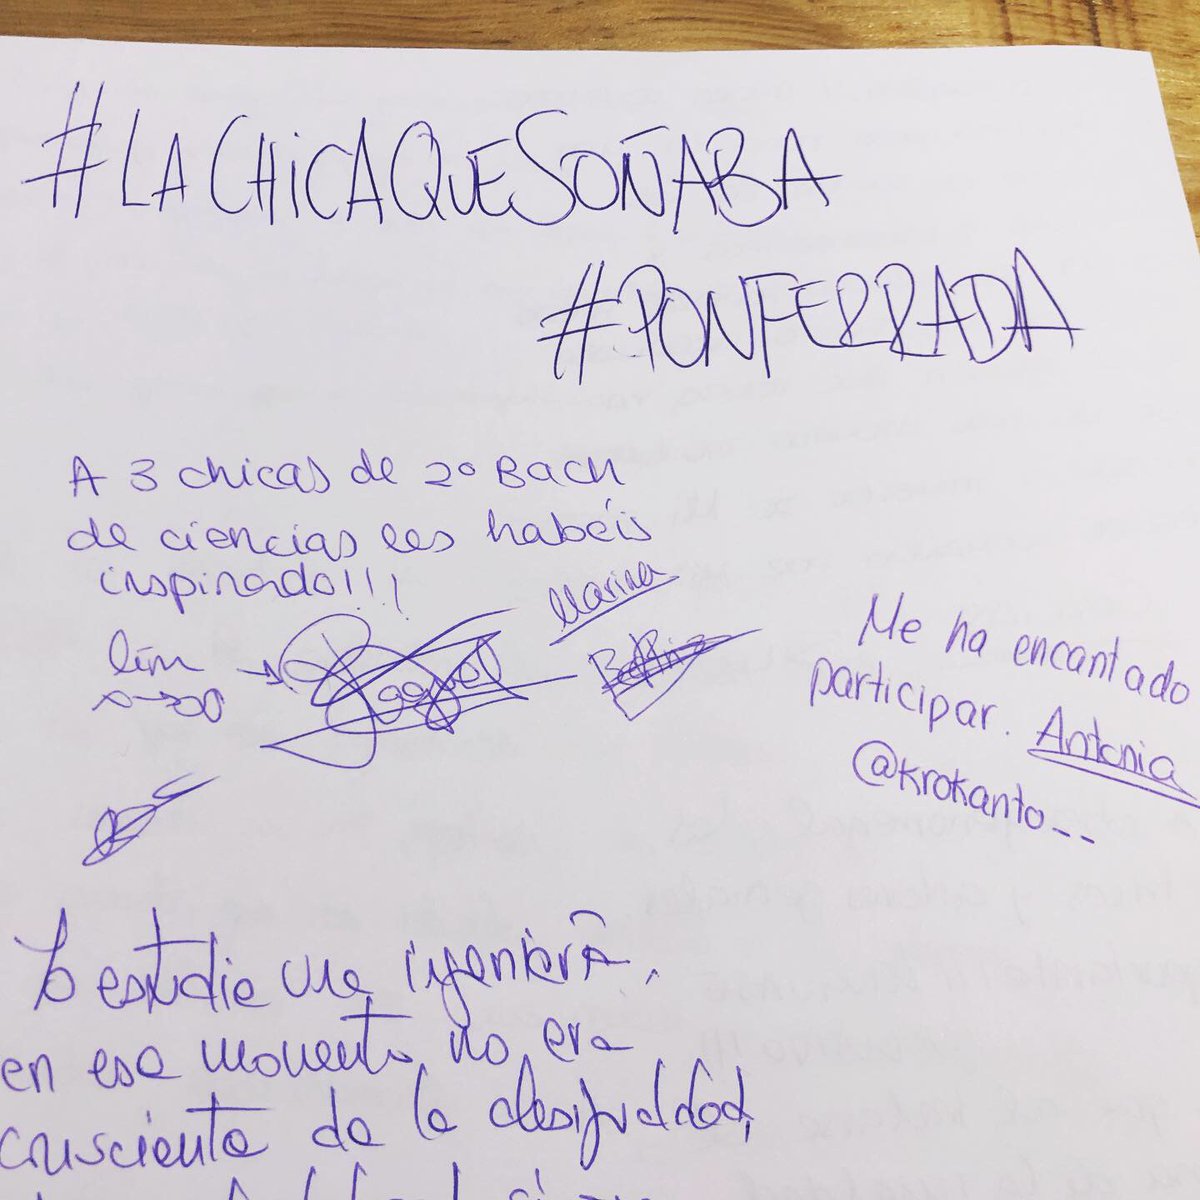 #LA CHICA QUE SOÑABA
#PONFERRADA
A 3 chicas de 2º Bach
de ciencias les habéis
inspirado!!!
Marina
lim
x→∞
Raquel
Me ha encantado
participar. Antonia
@krokanto__
Yo estudié una ingeniería,
en ese momento no era
consciente de la desigualdad,